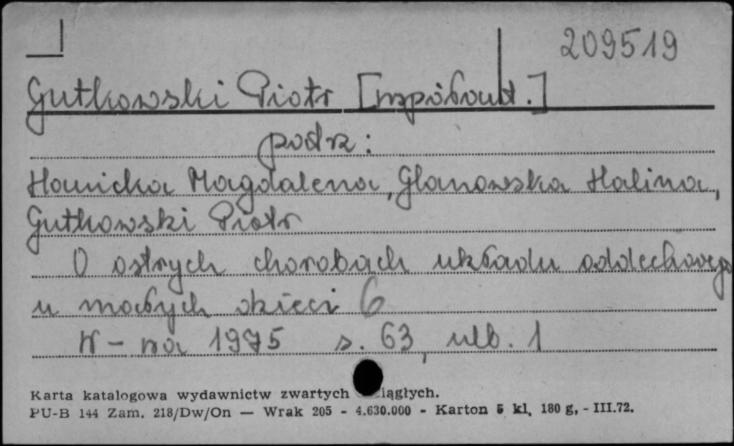 209519
Gutkowski Piotr [współaut.]
podz:
Hanicka Magdalena, Glanowska Halina,
Gutkowski Piotr
O ostrych chorobach układu oddechowego
u małych dzieci 6
W-wa 1975 s. 63, nlb. 1
Karta katalogowa wydawnictw zwartych ciągłych.
PU-B 144 Zam. 218/Dw/On — Wrak 205 - 4.630.000 - Karton 5 kl, 180 g, - III.72.